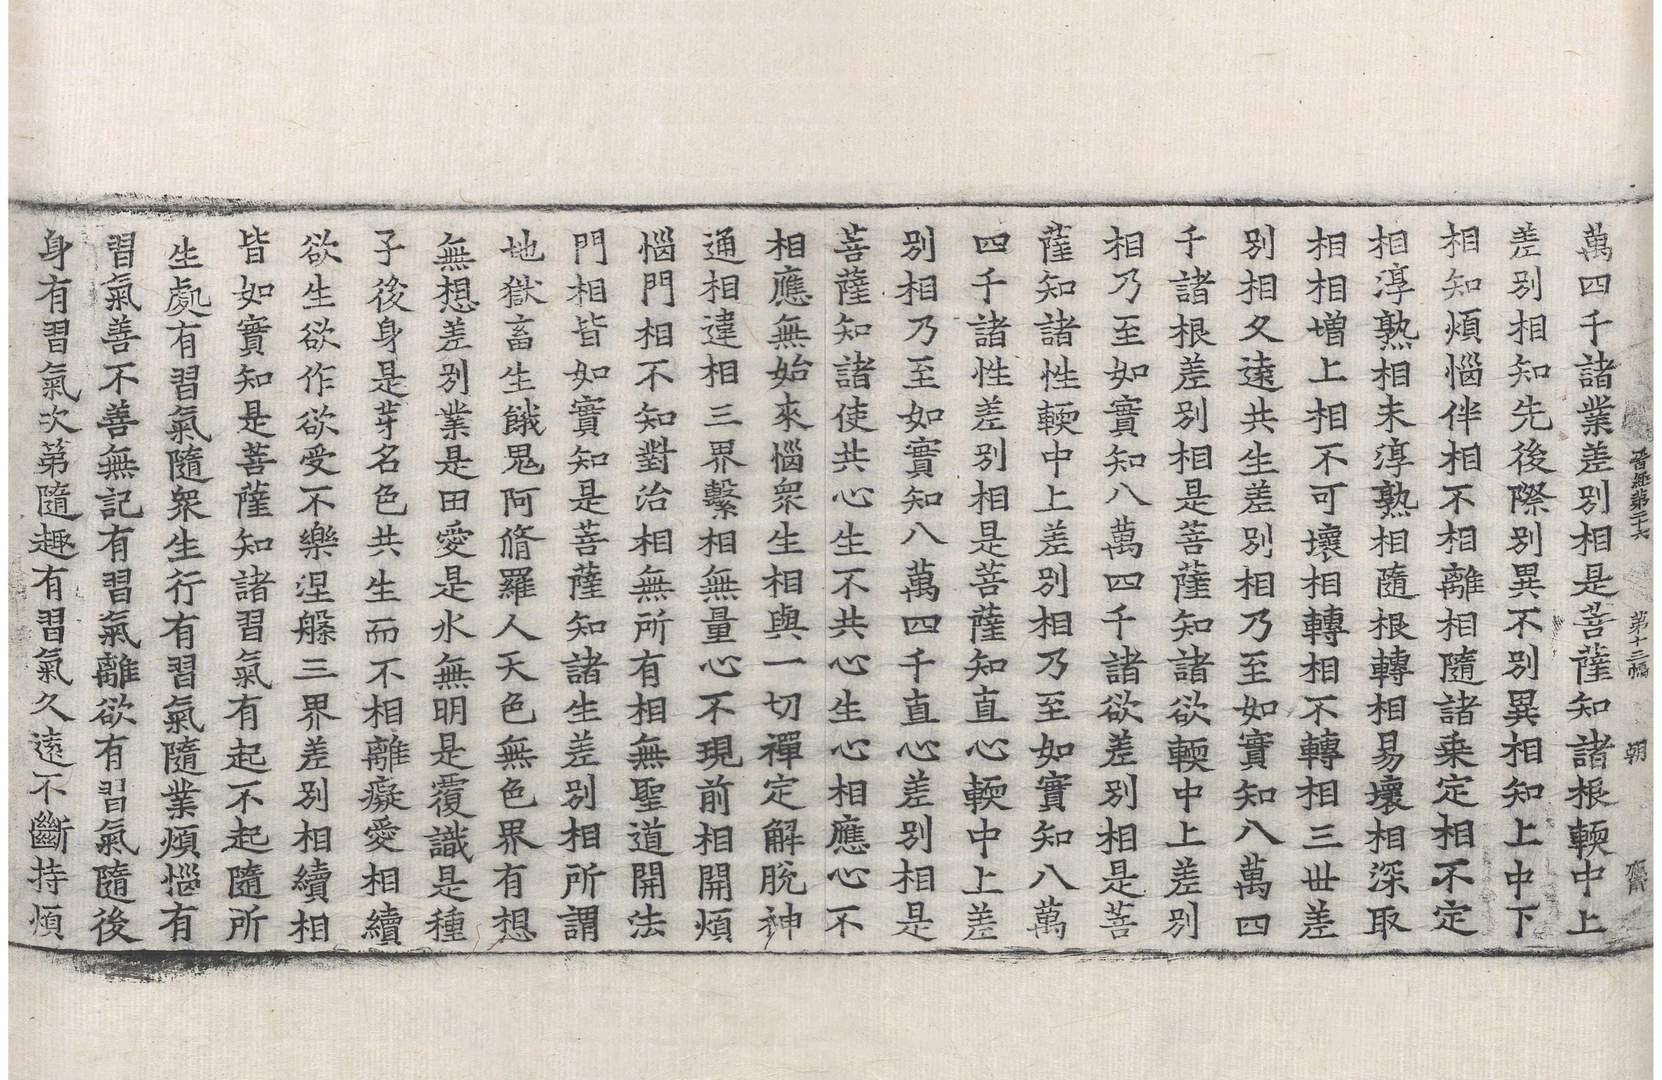 晉經第二十六　第十三幅　朝
萬四千諸業差別相是菩薩知諸根輭中上
差別相知先後際別異不別異相知上中下
相知煩惱伴相不相離相隨諸乗定相不定
相淳熟相未淳熟相隨根轉相易壞相深取
相相増上相不可壞相轉相不轉相三丗差
別相久遠共生差別相乃至如實知八萬四
千諸根差別相是菩薩知諸欲輭中上差別
相乃至如實知八萬四千諸欲差別相是菩
薩知諸性輭中上差別相乃至如實知八萬
四千諸性差別相是菩薩知直心輭中上差
別相乃至如實知八萬四千直心差別相是
菩薩知諸使共心生不共心生心相應心不
相應無始來惱衆生相與一切禪定解脫神
通相違相三界繫相無量心不現前相開煩
惱門相不知對治相無所有相無聖道開法
門相皆如實知是菩薩知諸生差別相所謂
地獄畜生餓鬼阿脩羅人天色無色界有想
無想差別業是田愛是水無明是覆識是種
子後身是芽名色共生而不相離癡愛相續
欲生欲作欲受不樂涅槃三界差別相續相
皆如實知是菩薩知諸習氣有起不起隨所
生處有習氣隨衆生行有習氣隨業煩惱有
習氣善不善無記有習氣離欲有習氣隨後
身有習氣次第隨趣有習氣久遠不斷持煩